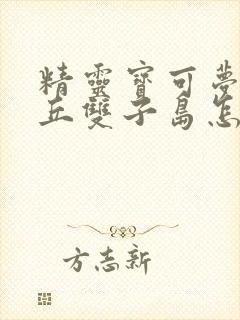 精靈寶可夢
丘雙子島怎
方志新